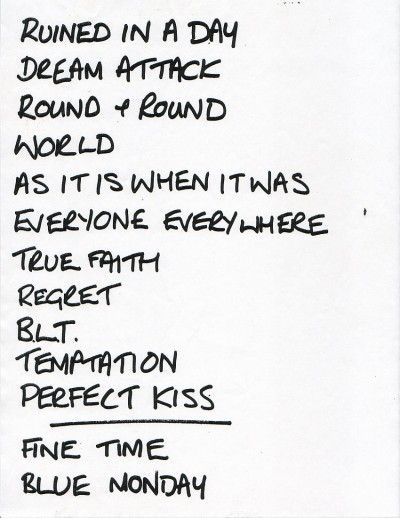 RUINED IN A DAY
DREAM ATTACK
ROUND + ROUND
WORLD
AS IT IS WHEN IT WAS
EVERYONE EVERYWHERE
TRUE FAITH
REGRET
B.L.T.
TEMPTATION
PERFECT KISS
FINE TIME
BLUE MONDAY